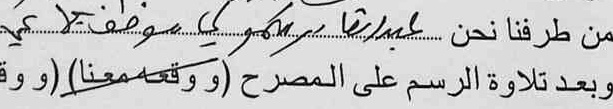 من طرفنا نحن عبد القادر موظف
وبعد تلاوة الرسم على المصرح (و وقعه معنا) (و وق